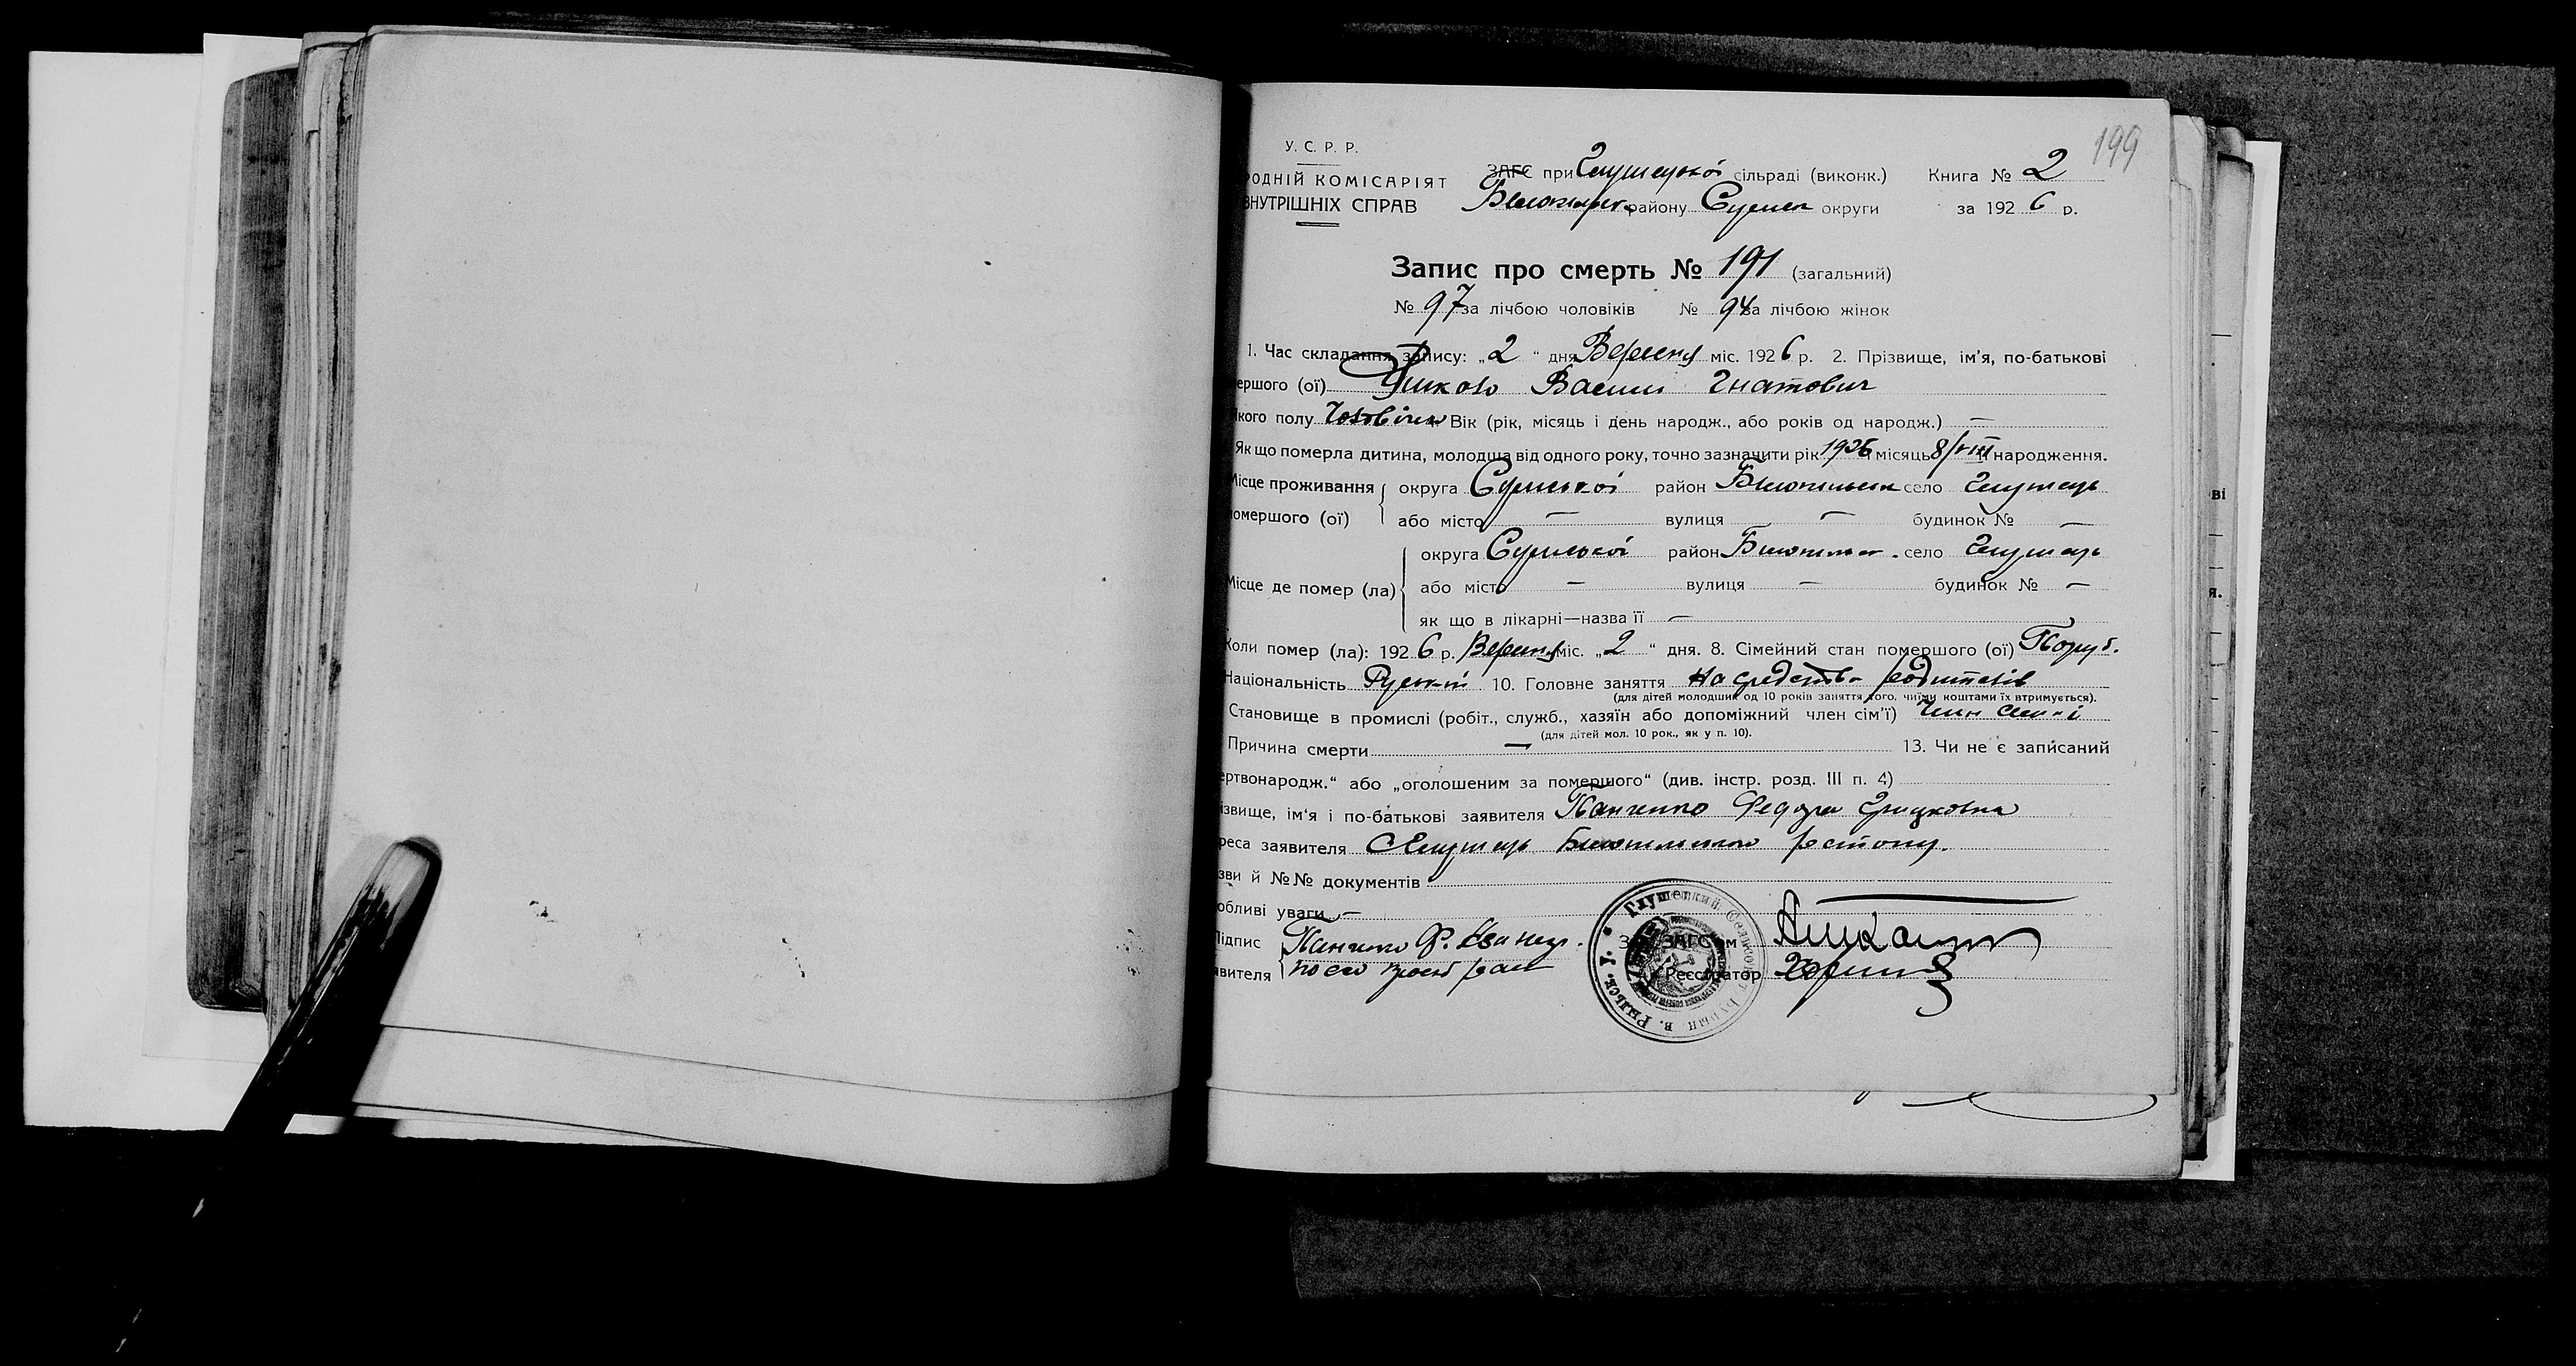 199
У. С. Р. Р.
РОДНІЙ КОМІСАРІЯТ
ВНУТРІШНІХ СПРАВ
ЗАГС при Глушецької сільраді (виконк.) Книга № 2
району Сумськ округи за 1926 р.
Запис про смерть № 191 (загальний)
№ 97 за лічбою чоловіків № 94 за лічбою жінок
1. Час складання запису: „2“ дня Вересня міс. 1926 р. 2. Прізвище, ім'я, по-батькові
ершого (ої) Василь Гнатович
кого полу Чоловічек Вік (рік, місяць і день народж., або років од народж.) —
Як що померла дитина, молодша від одного року, точно зазначити рік 1926 місяць 8/VIII народження.
Місце проживання округа Сумської район Білопільськ село Глушець
помершого (ої) або місто — вулиця — будинок № —
округа Сумської район Білопільськ. село Глушець
Місце де помер (ла) або місто — вулиця — будинок № —
як що в лікарні—назва її —
Коли помер (ла): 1926 р. Вересня міс. „2“ дня. 8. Сімейний стан помершого (ої)
Національність Руський 10. Головне заняття на средства родителів
(для дітей молодших од 10 років заняття того, чиїми коштами їх втримується).
Становище в промислі (робіт., служб., хазяїн або допоміжний член сім'ї) Член семьї
(для дітей мол. 10 рок., як у п. 10).
Причина смерти — 13. Чи не є записаний
ертвонародж.“ або „оголошеним за помершого“ (див. інстр. розд. III п. 4)
ізвище, ім'я і по-батькові заявителя Панченко Федора Грицковна
реса заявителя Глушець Білопільського району.
зви й №№ документів
обливі уваги —
Підпис Панченко Ф.
явителя
Зав. ЗАГС'ом
Реєстратор
Глушецкий Сельсовет Бурын. в. Рыльск. у.
ві
я.